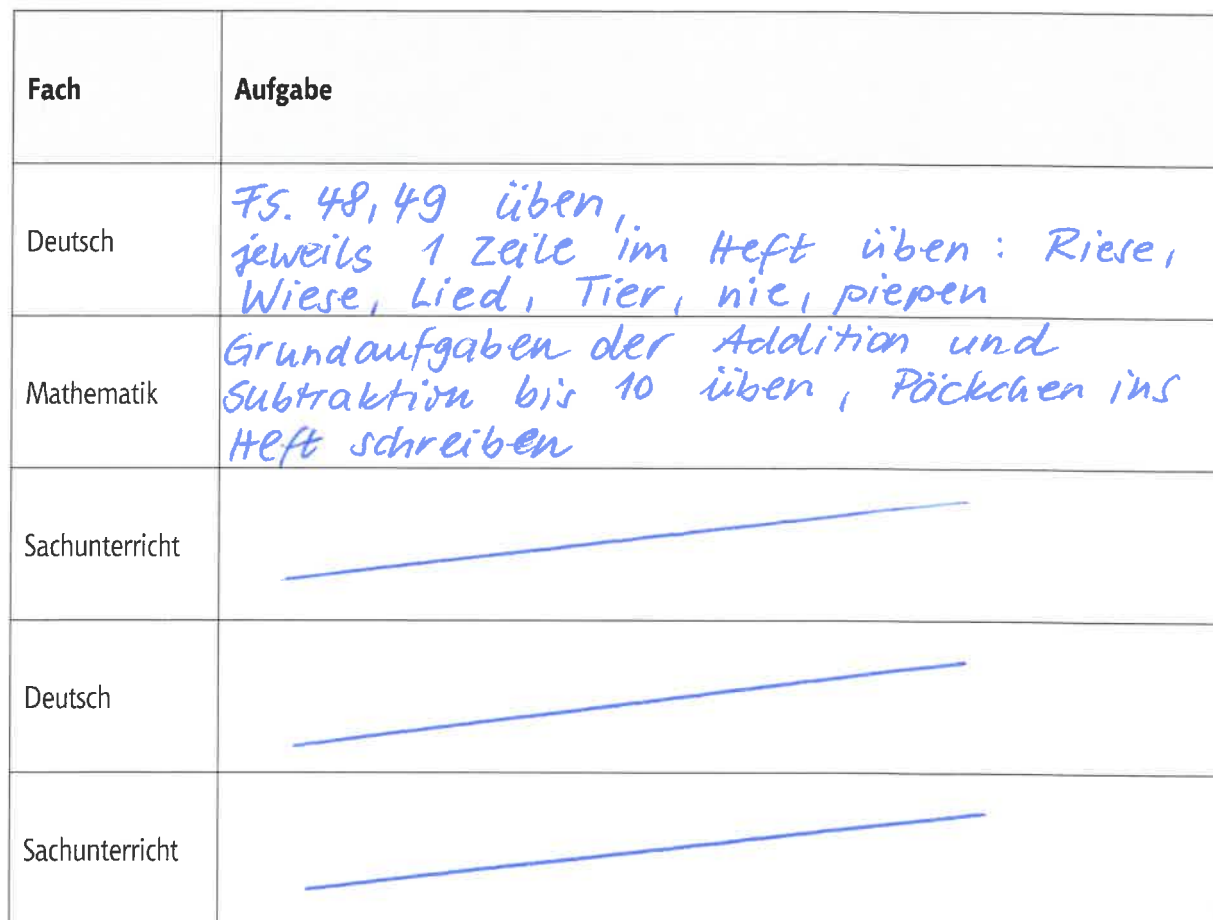 Fach Aufgabe
Deutsch
Fs. 48, 49 üben,
jeweils 1 Zeile im Heft üben: Riese,
Wiese, Lied, Tier, nie, piepen
Mathematik
Grundaufgaben der Addition und
Subtraktion bis 10 üben, Päckchen ins
Heft schreiben
Sachunterricht
Deutsch
Sachunterricht